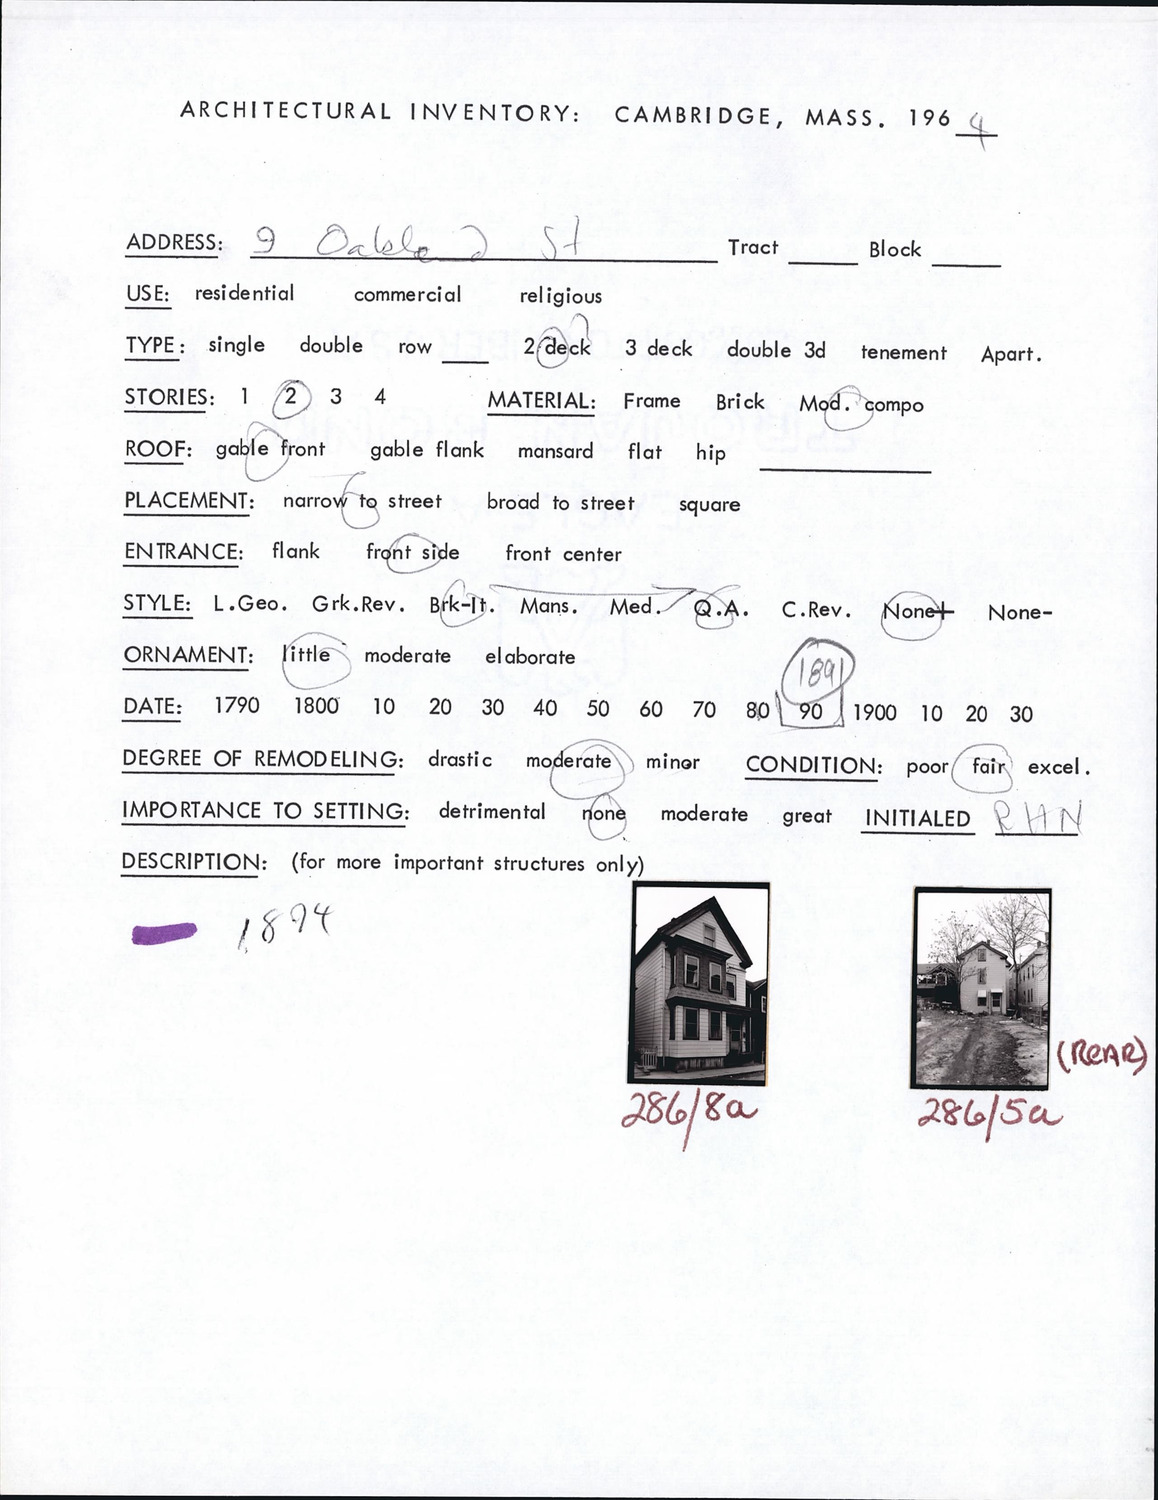 ARCHITECTURAL INVENTORY: CAMBRIDGE, MASS. 1964
ADDRESS: 9 Oakland St Tract ____ Block ____
USE: residential commercial religious
TYPE: single double row ___ 2 deck 3 deck double 3d tenement Apart.
STORIES: 1 2 3 4 MATERIAL: Frame Brick Mod. compo
ROOF: gable front gable flank mansard flat hip ____
PLACEMENT: narrow to street broad to street square
ENTRANCE: flank front side front center
STYLE: L.Geo. Grk.Rev. Brk-It. Mans. Med. Q.A. C.Rev. None+ None-
ORNAMENT: little moderate elaborate
1891
DATE: 1790 1800 10 20 30 40 50 60 70 80 90 1900 10 20 30
DEGREE OF REMODELING: drastic moderate minor CONDITION: poor fair excel.
IMPORTANCE TO SETTING: detrimental none moderate great INITIALED RHN
DESCRIPTION: (for more important structures only)
1894
(REAR)
286/8a 286/5a